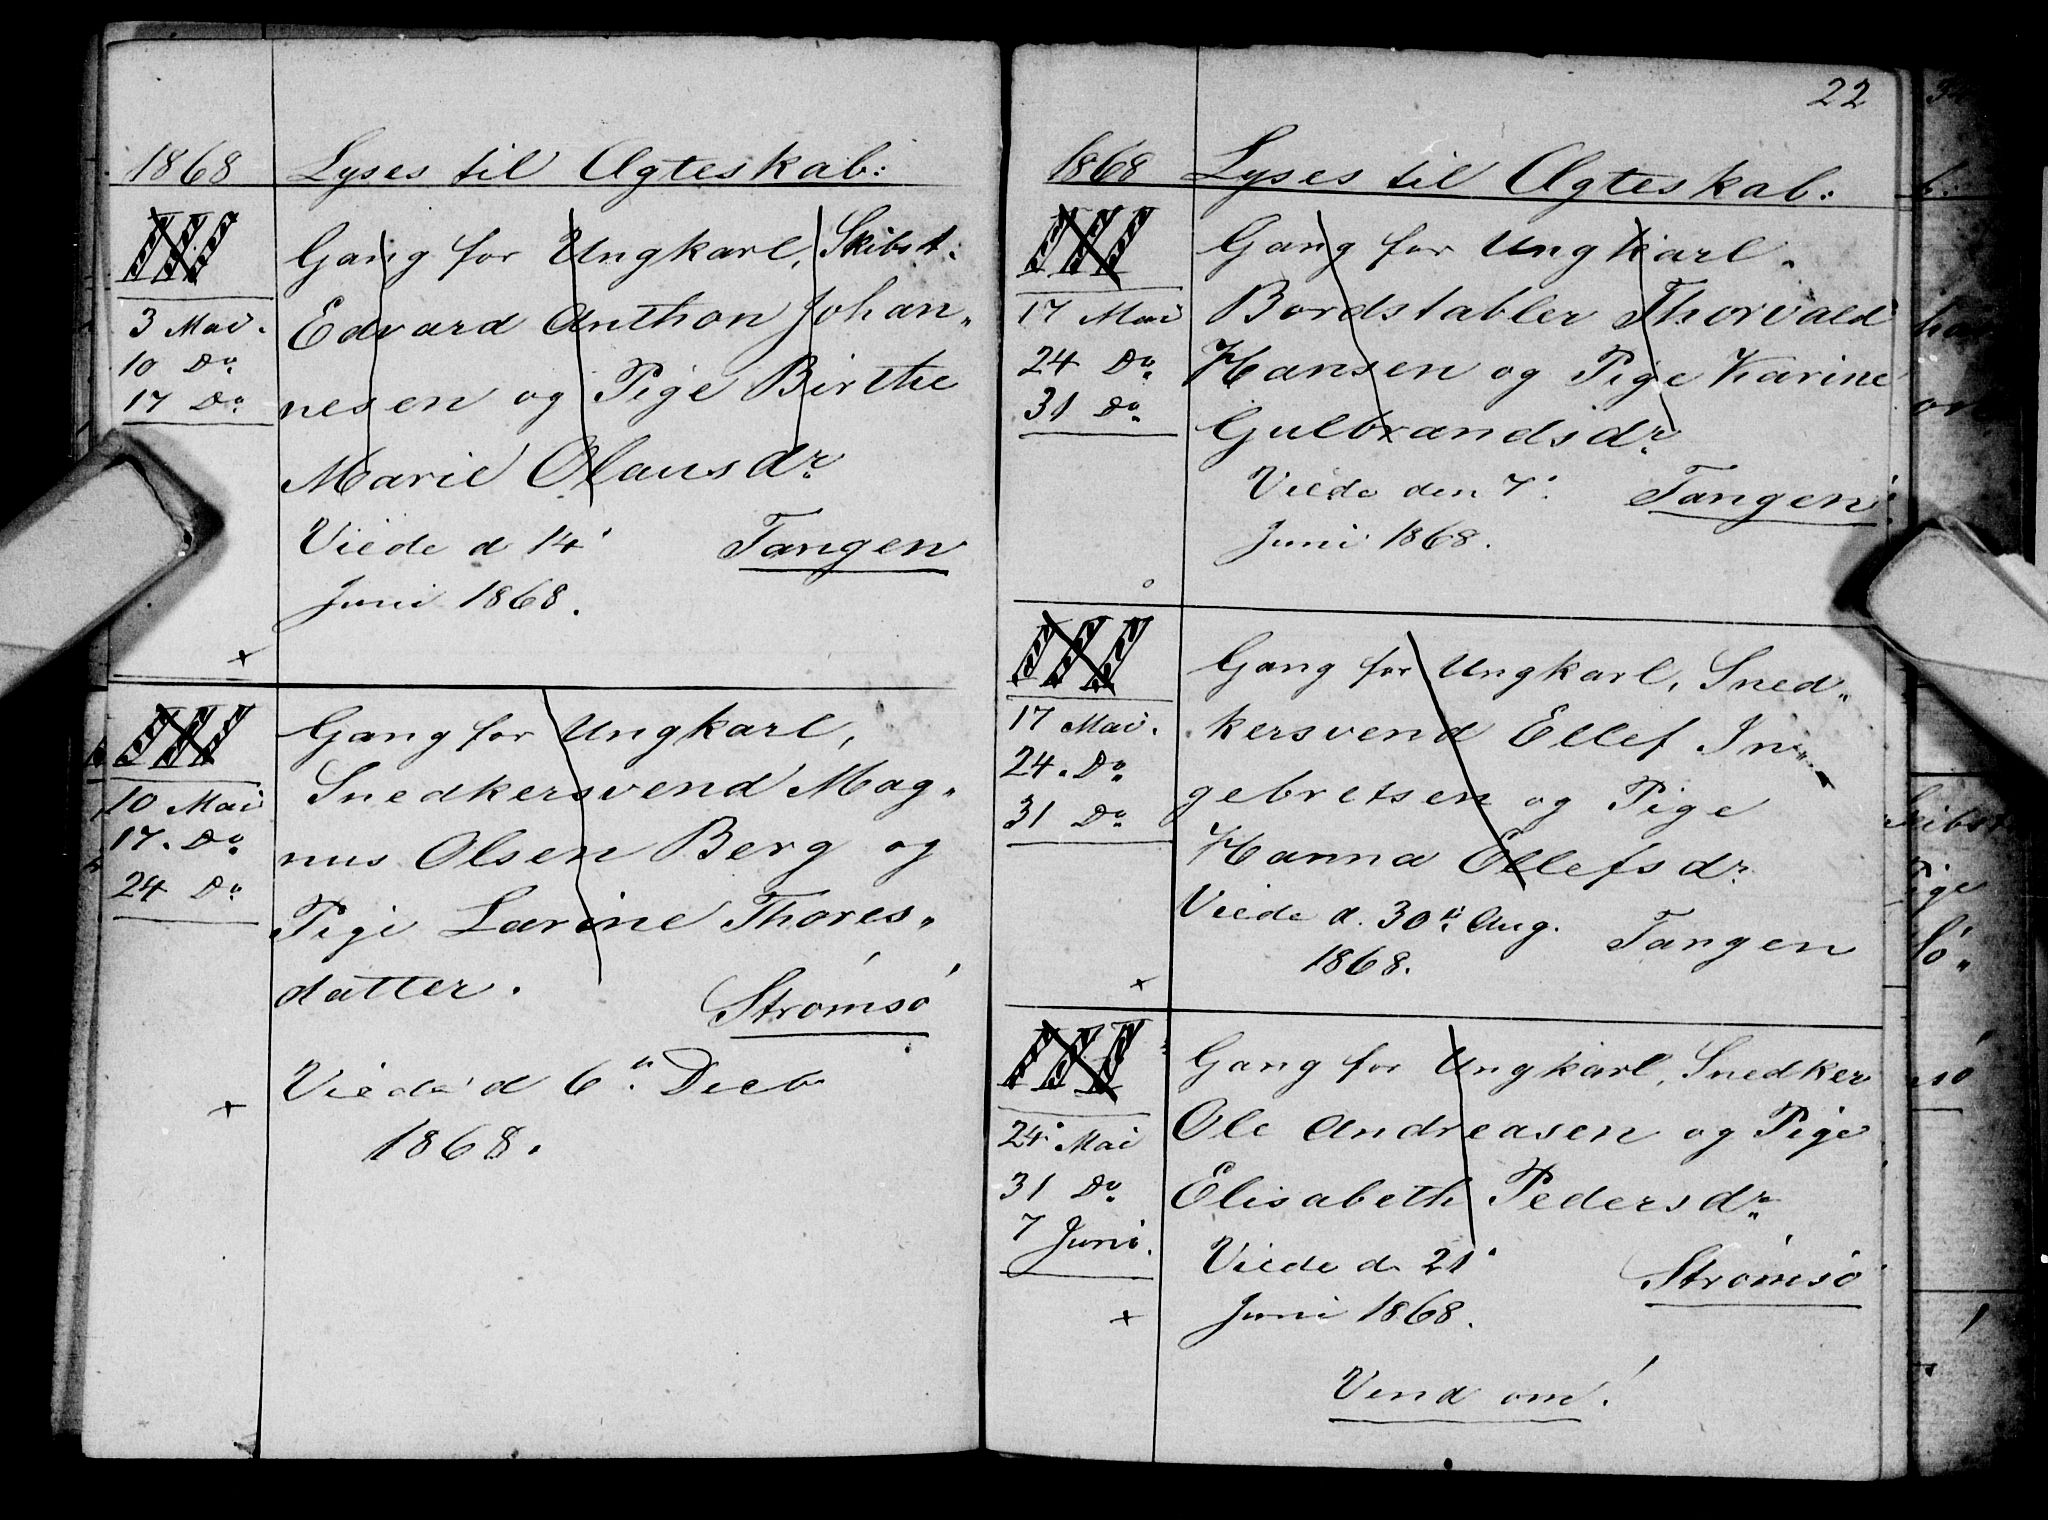 1868 Lyses til Ægteskab:
III
3 Mai.
10 Do
17 Do
Gang for Ungkarl, Skibst:
Edvard Anthon Johan„
nesen og Pige Birthe
Marie Olausdr.
Viede d 14'
Tangen
Juni 1868.
+
III
10 Mai
17. Do
24 Do
Gang for Ungkarl,
Snedkersvend Mag„
nus Olsen Berg og
Pige Larine Thores„
datter.
Strømsø
Viede d 6te Decb
1868.
+
22
1868 Lyses til Ægteskab:
III
17 Mai
24 Do
31 Do
Gang for Ungkarl.
Bordstabler Thorvald
Hansen og Pige Karine
Gulbrandsdr.
Viede den 7'
Tangen
Juni 1868.
III
17 Mai.
24. Do
31 Do
Gang for Ungkarl, Sned„
kersvend Ellef In„
gebretsen og Pige
Hanna Ellefsdr.
Viede d. 30te Aug.
Tangen
1868.
+
III
24' Mai
31 Do
7 Juni.
Gang for Ungkarl, Snedker
Ole Andreasen og Pige
Elisabeth Pedersdr.
Viede d. 21'
Strømsø
Juni 1868.
+
Vend om!